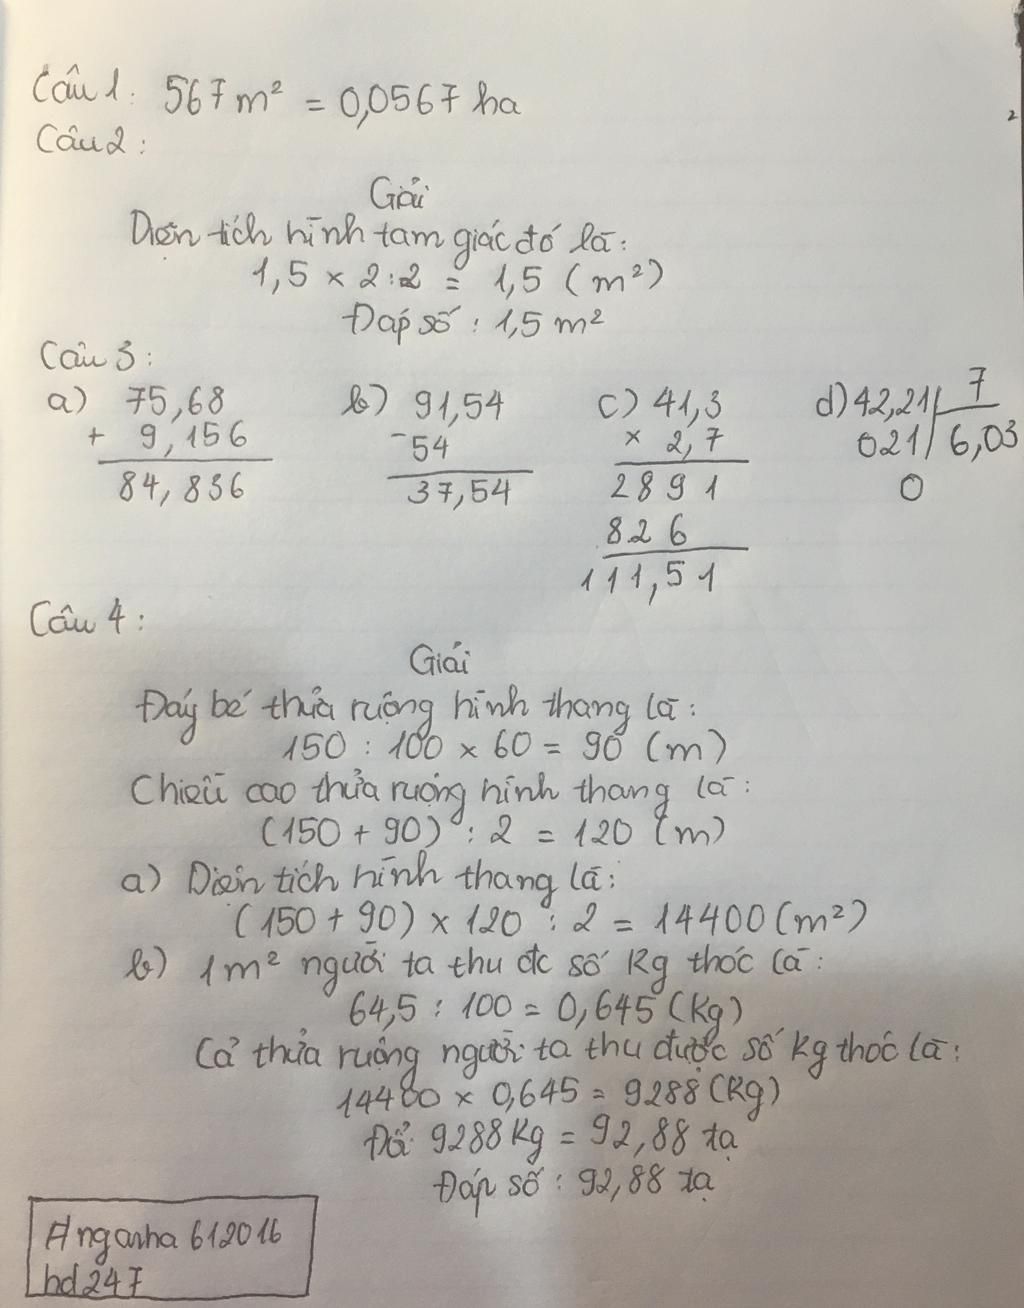 Câu 1: 567 m² = 0,0567 ha
Câu 2:
Giải
Diện tích hình tam giác đó là:
1,5 × 2 : 2 = 1,5 (m²)
Đáp số : 1,5 m²
Câu 3 :
a) 75,68 b) 91,54 c) 41,3 d) 42,21 7
+ 9,156 - 54 × 2,7 021 6,03
84,836 37,54 2891 0
826
111,51
Câu 4 :
Giải
Đáy bé thửa ruộng hình thang là :
150 : 100 × 60 = 90 (m)
Chiều cao thửa ruộng hình thang là :
(150 + 90) : 2 = 120 (m)
a) Diện tích hình thang là :
(150 + 90) × 120 : 2 = 14400 (m²)
b) 1m² người ta thu đc số kg thóc là :
64,5 : 100 = 0,645 (kg)
Cả thửa ruộng người ta thu được số kg thóc là :
14400 × 0,645 = 9288 (kg)
Đổi 9288 kg = 92,88 tạ
Đáp số : 92,88 tạ
612016
hd247